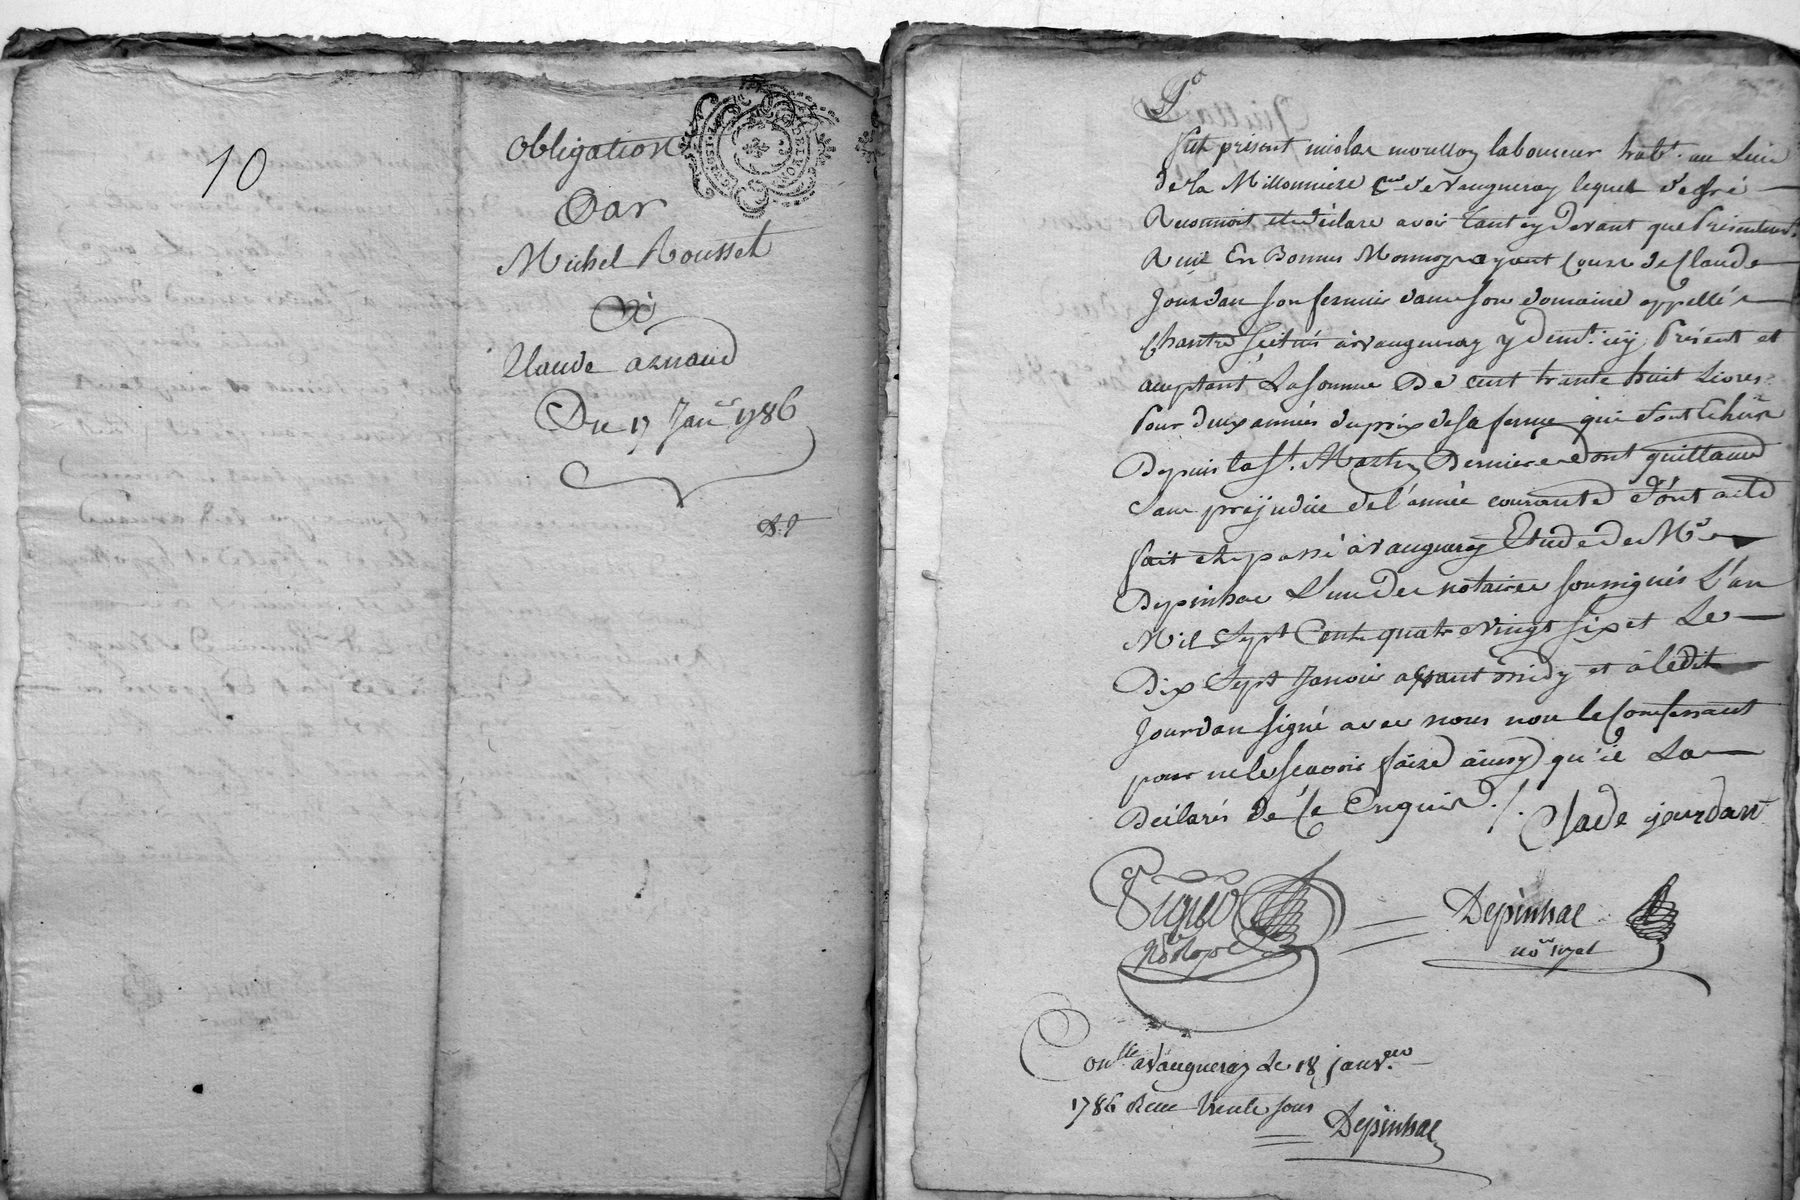 10
Obligation
Par
Michel Rousset
à
Claude arnaud
Du 17 Janer 1786
Po
fut présent nicolas moullon laboureur habt. au Lieu
de La Millonniere Que de Vaugneray lequel de gré
Reconnoit et déclare avoir tant cy devant que Présentemt.
Reçu En Bonnes Monnoys ayant Cours de Claude
Jourdan son fermier dans son domaine appellé
Chantre scitué à Vaugneray y demt. icy Présent et
acceptant La somme De cent trante huit Livres
Pour deux années du prix de sa ferme qui sont Echües
Depuis la St. Martin Derniere dont quittance
sans préjudice de l'année courante dont acte
fait et passé à Vaugneray Etude de Me
Depinhac L'un des notaires soussignés L'an
Mil Sept Cents quatre vingt six et Le
Dix Sept Janvier avant midy et à ledit
Jourdan signé avec nous non le Confessant
pour ne le scavoir faire ainsy qu'il La
Déclaré de ce Enquis ./.
Clade jourdan
Depinhac
nore royal
Conlle a Vaugneray le 18 janver
1786 Reçu trente sous
Depinhac